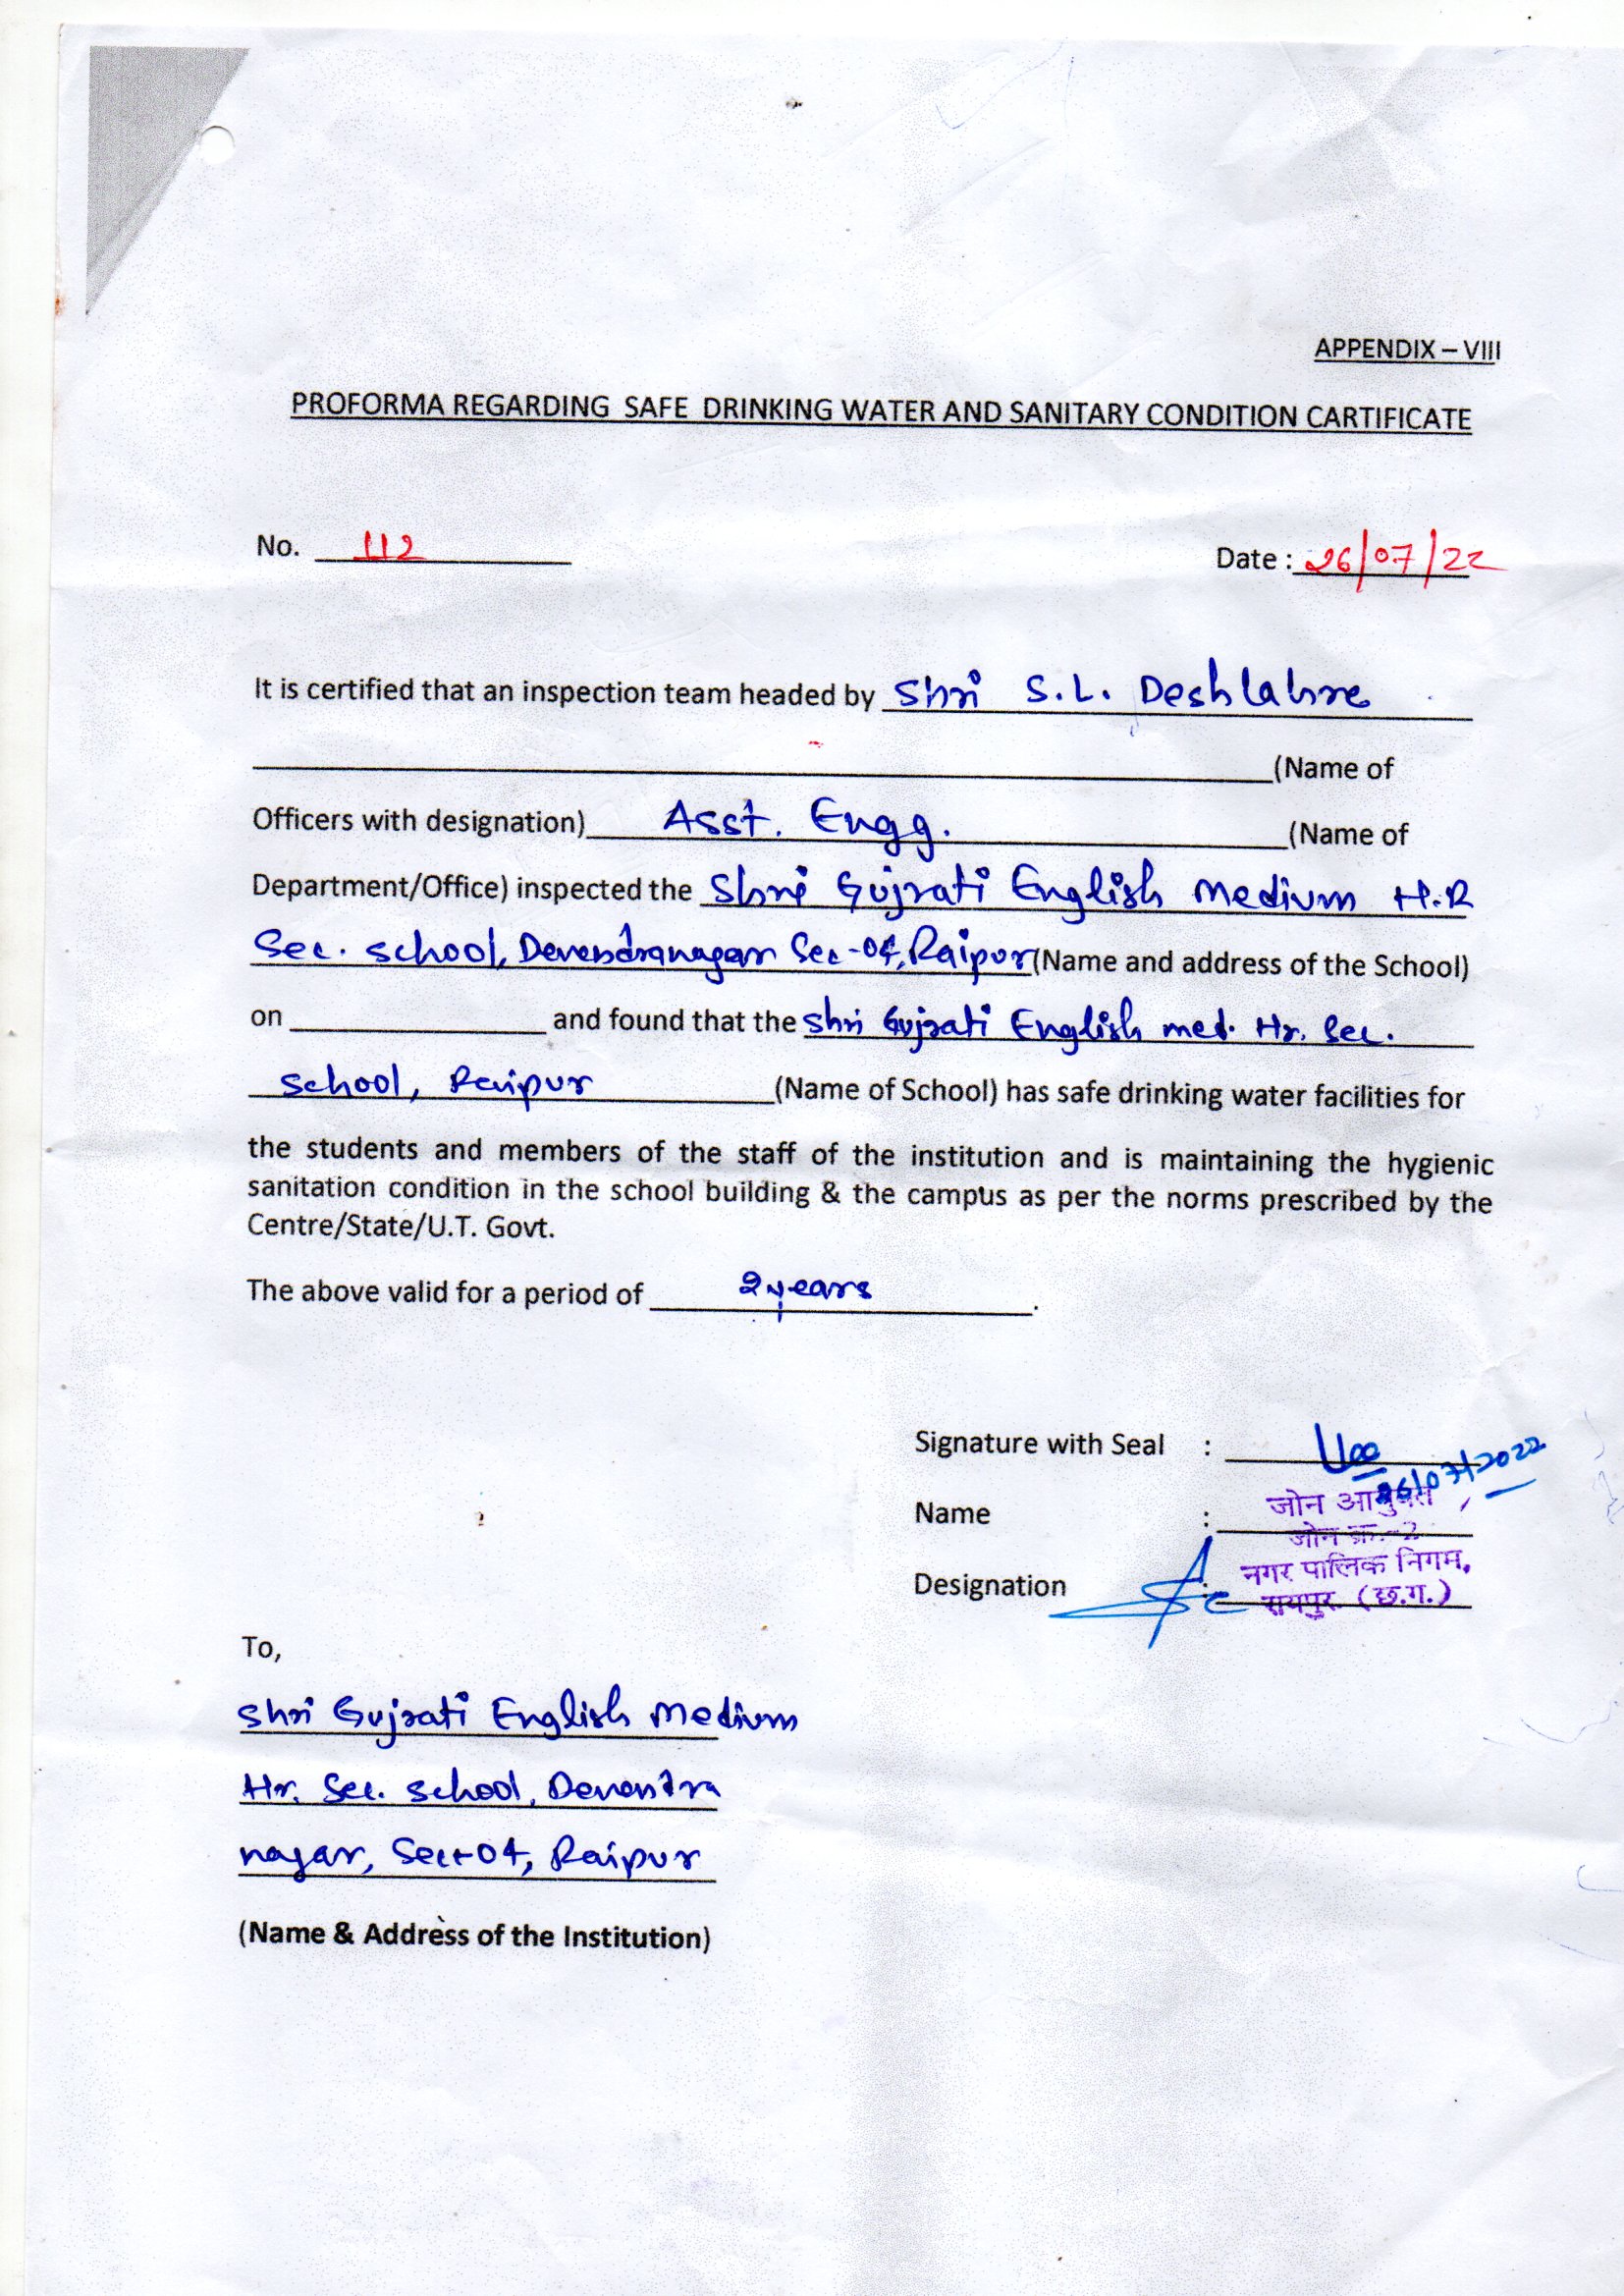 APPENDIX – VIII
PROFORMA REGARDING SAFE DRINKING WATER AND SANITARY CONDITION CARTIFICATE
No. 112 Date : 26/07/22
It is certified that an inspection team headed by Shri S.L. Deshlahre
(Name of
Officers with designation) Asst. Engg. (Name of
Department/Office) inspected the Shri Gujrati English Medium H.R
Sec. School, Devendranagar Sec-04, Raipur (Name and address of the School)
on and found that the Shri Gujrati English med. Hr. Sec.
School, Raipur (Name of School) has safe drinking water facilities for
the students and members of the staff of the institution and is maintaining the hygienic
sanitation condition in the school building & the campus as per the norms prescribed by the
Centre/State/U.T. Govt.
The above valid for a period of 2 years .
Signature with Seal :
26/07/2022
Name : जोन आयुक्त
जोन क्र.-2
नगर पालिक निगम,
Designation : रायपुर (छ.ग.)
To,
Shri Gujrati English Medium
Hr. Sec. School, Devendra
nagar, Sec-04, Raipur
(Name & Address of the Institution)